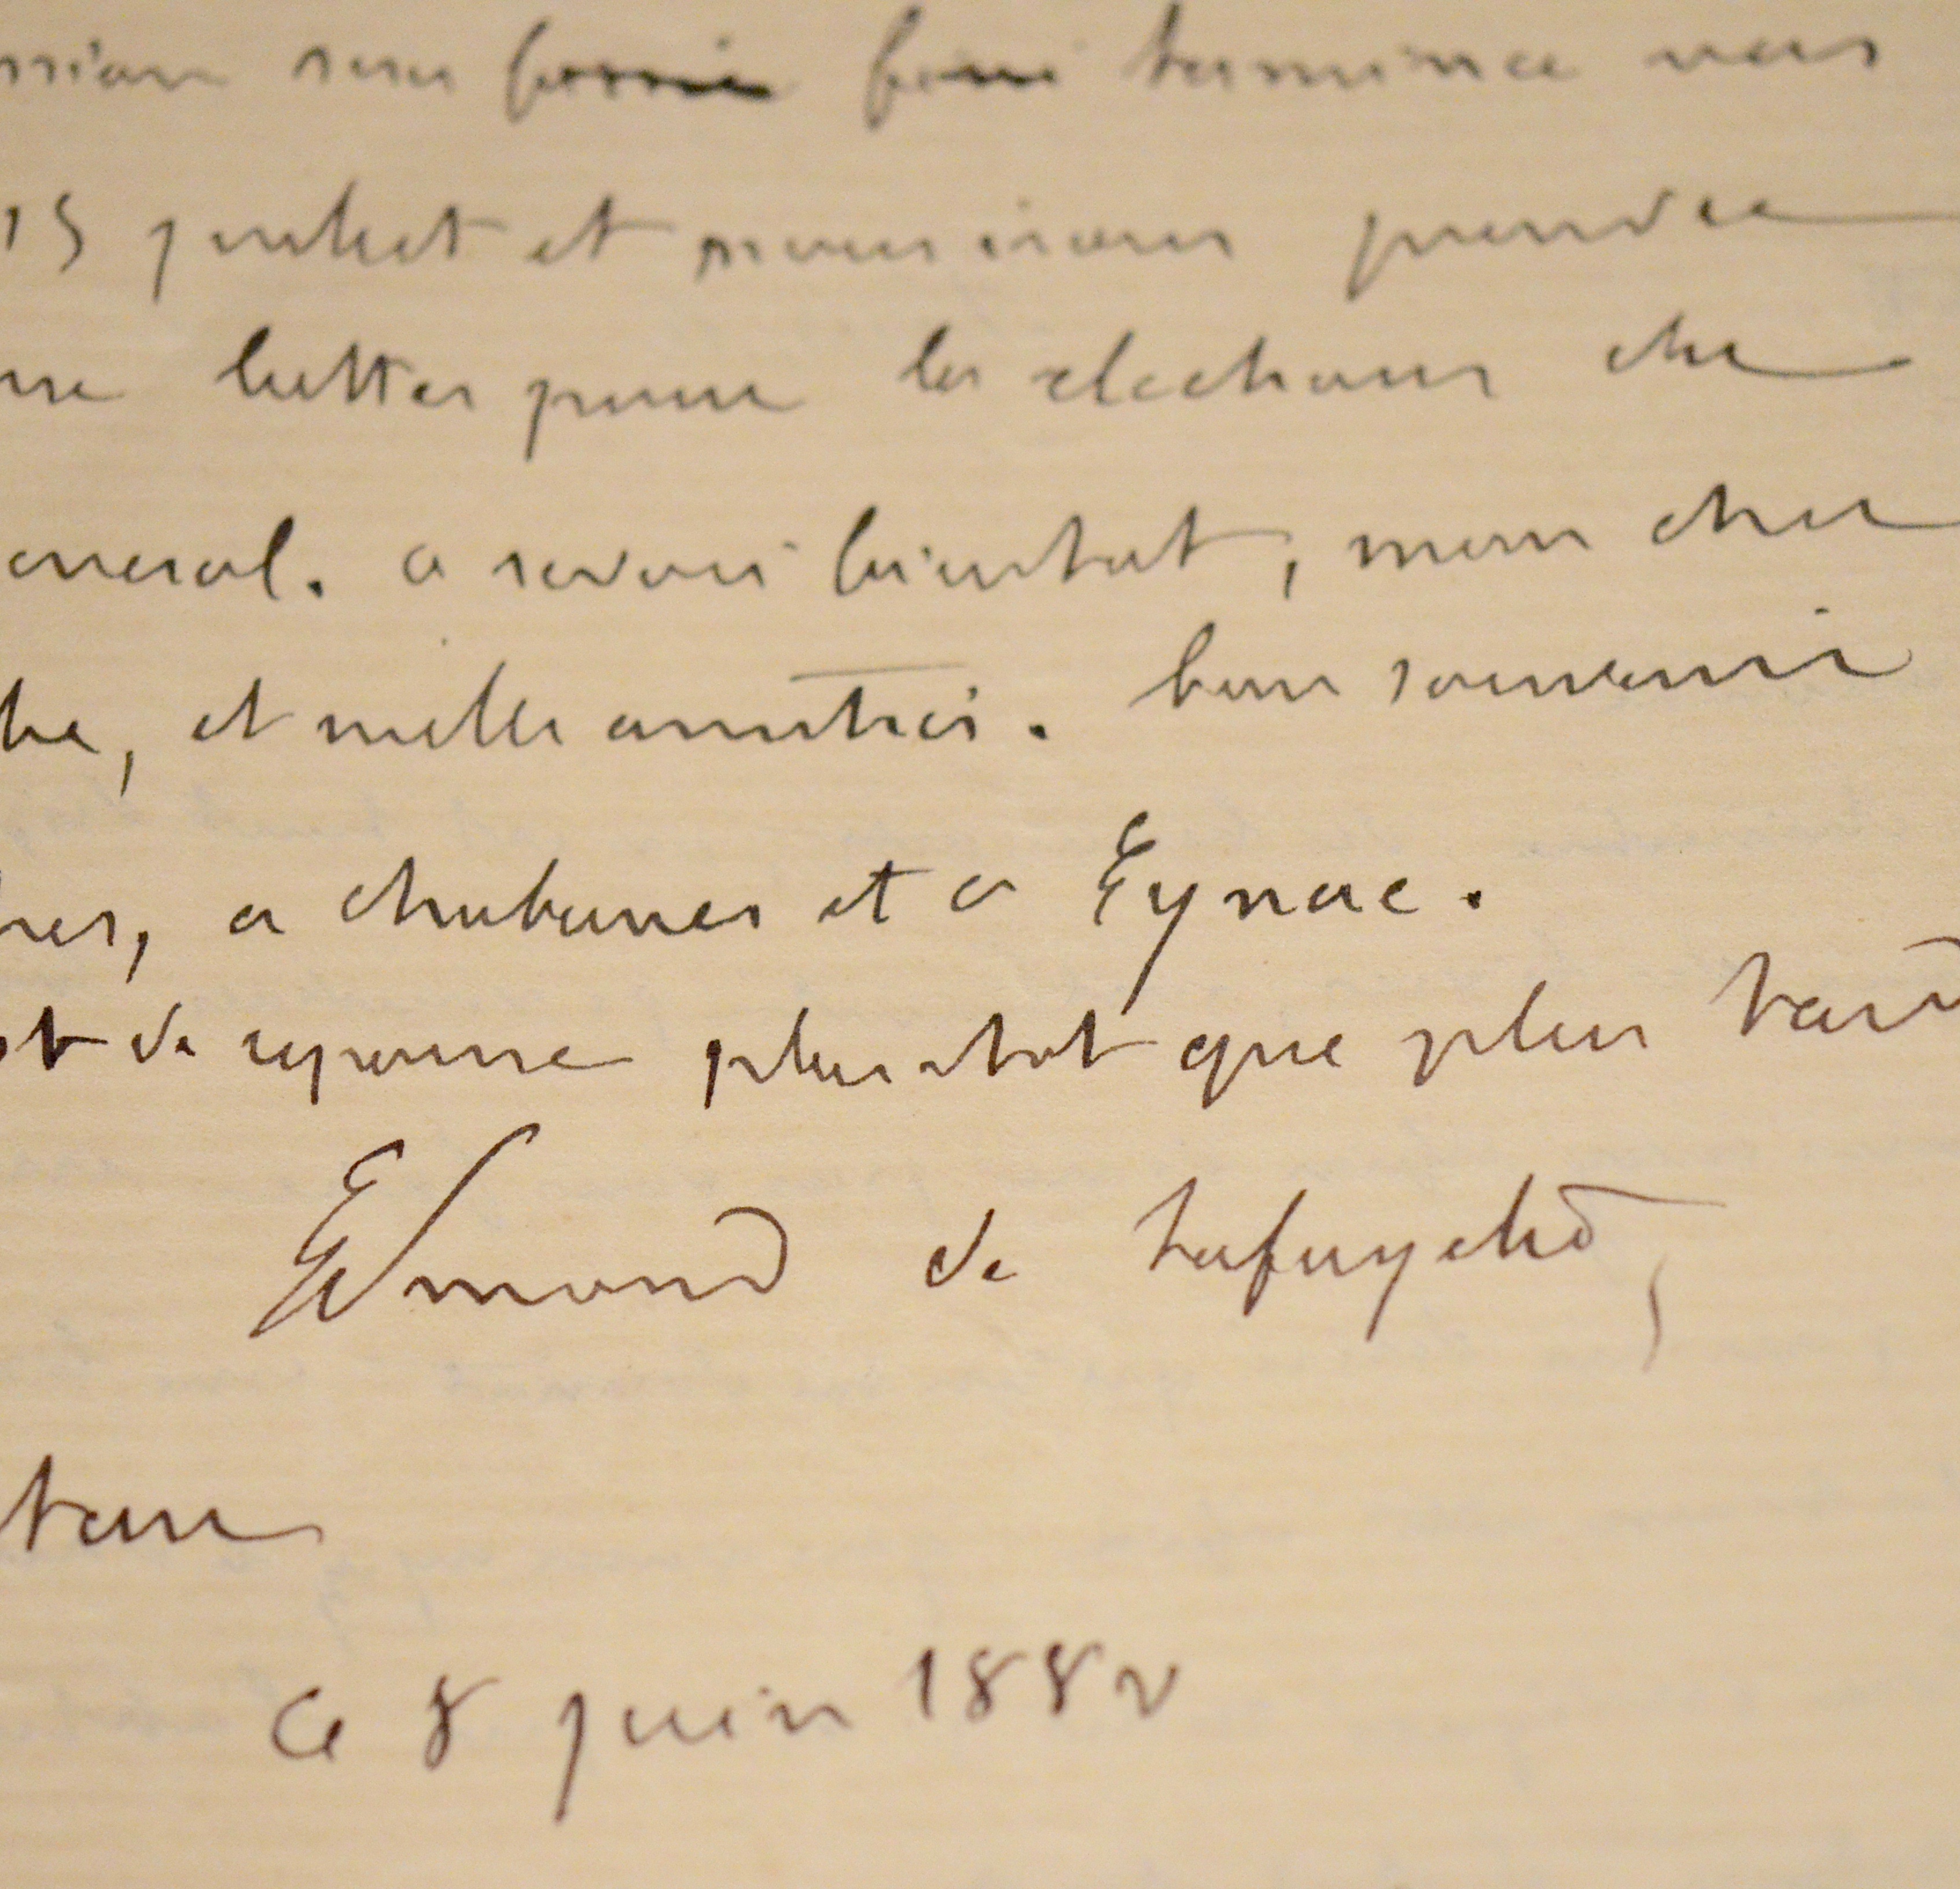 ssion sera terminée vers
15 juillet et nous irons prendre
luttes pour les elections
eneral. a revoir bientot, mon cher
et milles amitiés. bon souvenir
a chabanes et a Eynac.
de reponse plus tot que plus tard
Edmond de Lafayette
ce 8 juin 1882